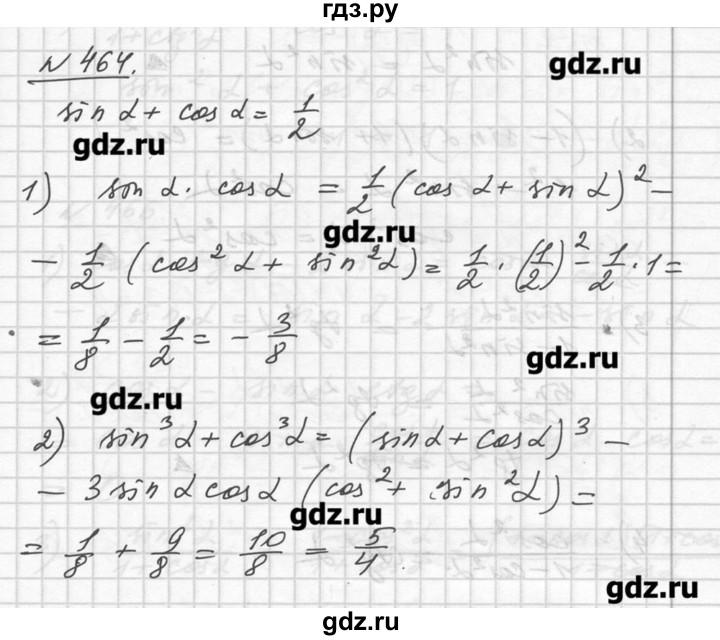 гдз.ру
№ 464.
gdz.ru
sin α + cos α = 1/2
gdz.ru
1) sin α · cos α = 1/2 (cos α + sin α)² −
gdz.ru
− 1/2 (cos² α + sin² α) = 1/2 · (1/2)² − 1/2 · 1 =
= 1/8 − 1/2 = − 3/8
gdz.ru
gdz.ru
2) sin³ α + cos³ α = (sin α + cos α)³ −
− 3 sin α cos α (cos² + sin² α) =
gdz.ru
= 1/8 + 9/8 = 10/8 = 5/4
gdz.ru
gdz.ru